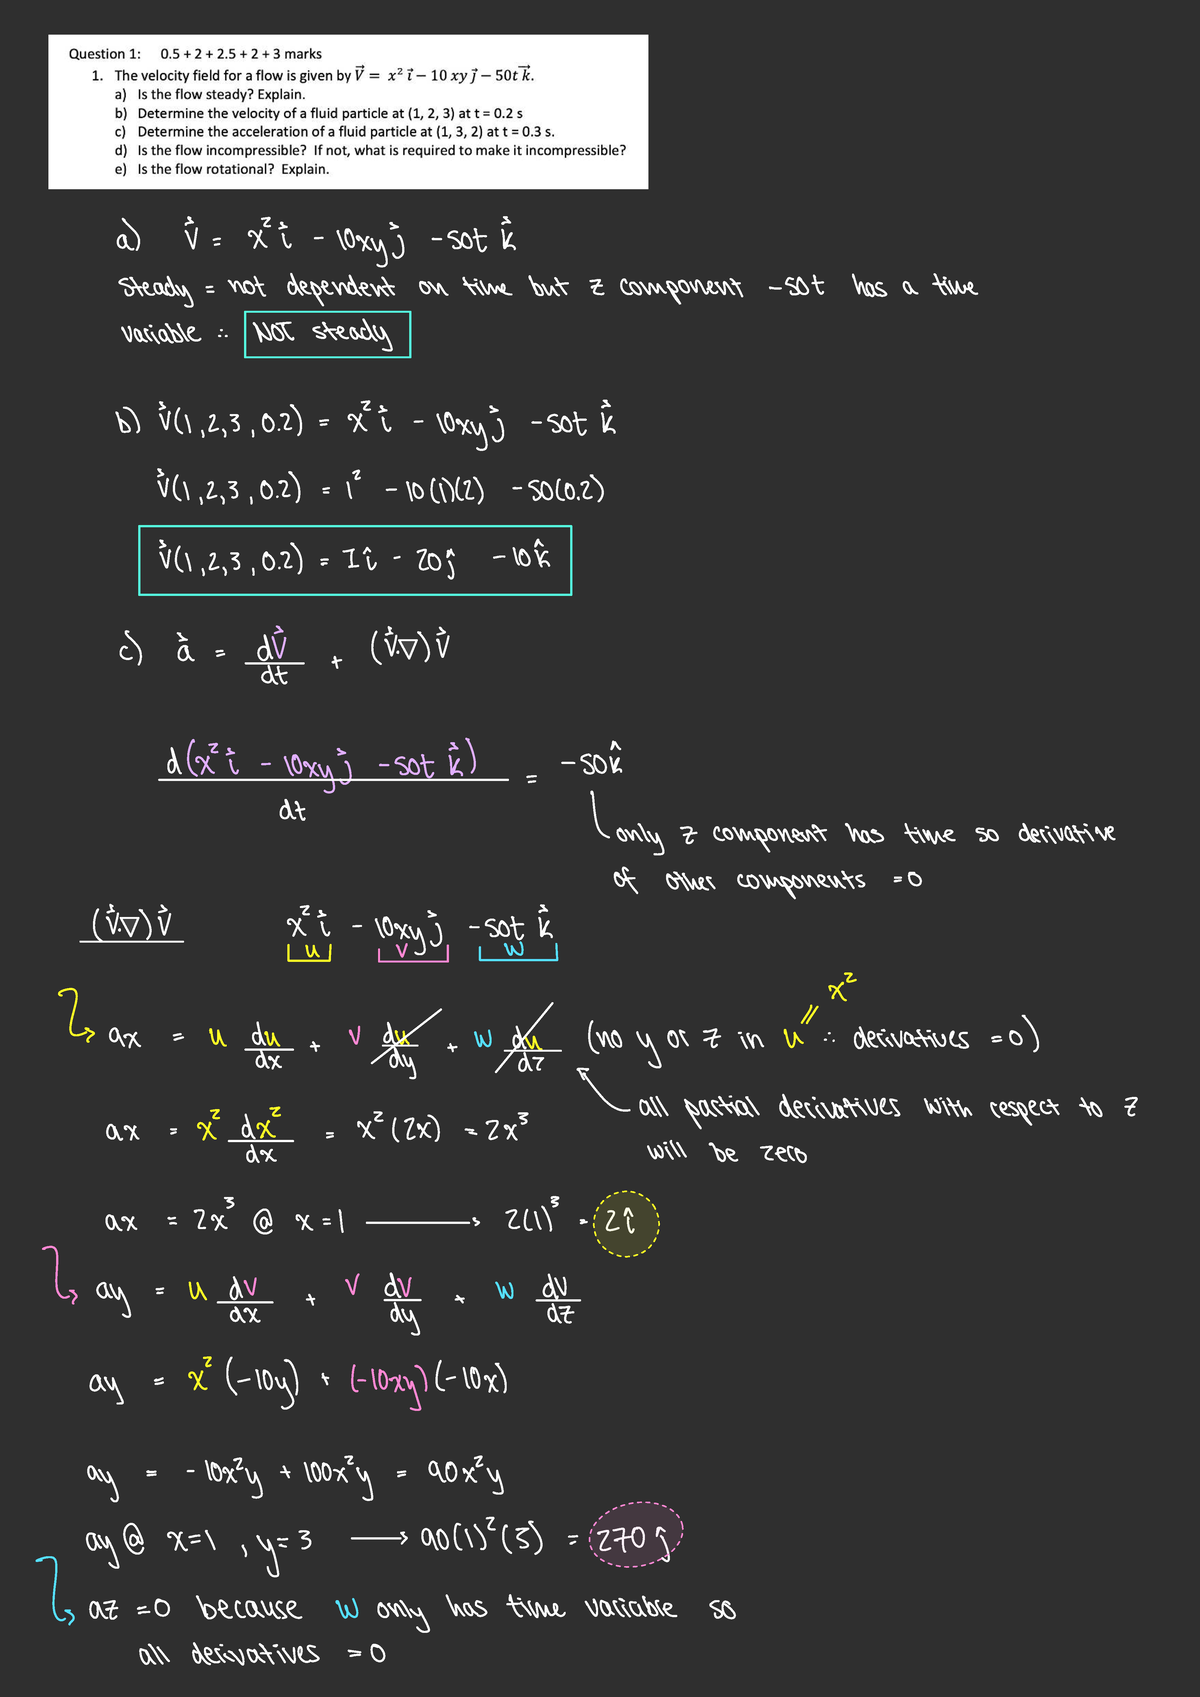 Question 1: 0.5 + 2 + 2.5 + 2 + 3 marks
1. The velocity field for a flow is given by V⃗ = x² i⃗ – 10 xy j⃗ – 50t k⃗.
a) Is the flow steady? Explain.
b) Determine the velocity of a fluid particle at (1, 2, 3) at t = 0.2 s
c) Determine the acceleration of a fluid particle at (1, 3, 2) at t = 0.3 s.
d) Is the flow incompressible? If not, what is required to make it incompressible?
e) Is the flow rotational? Explain.
a) V⃗ = x² i⃗ - 10xy j⃗ - 50t k⃗
steady = not dependent on time but z component -50t has a time
variable ∴ NOT steady
b) V⃗(1,2,3,0.2) = x² i⃗ - 10xy j⃗ - 50t k⃗
V⃗(1,2,3,0.2) = 1² - 10(1)(2) - 50(0.2)
V⃗(1,2,3,0.2) = 1î - 20ĵ - 10k̂
c) a⃗ = dV⃗/dt + (V⃗.∇)V⃗
d(x² i⃗ - 10xy j⃗ - 50t k⃗)/dt = -50k̂
only z component has time so derivative
of other components = 0
(V⃗.∇)V⃗ x² i⃗ - 10xy j⃗ - 50t k⃗
u v w
x²
ax = u du/dx + v du/dy + w du/dz (no y or z in u ∴ derivatives = 0)
all partial derivatives with respect to z
will be zero
ax = x² dx²/dx = x²(2x) = 2x³
ax = 2x³ @ x = 1 → 2(1)³ = 2î
ay = u dv/dx + v dv/dy + w dv/dz
ay = x²(-10y) + (-10xy)(-10x)
ay = -10x²y + 100x²y = 90x²y
ay @ x=1, y=3 → 90(1)²(3) = 270ĵ
az = 0 because w only has time variable so
all derivatives = 0